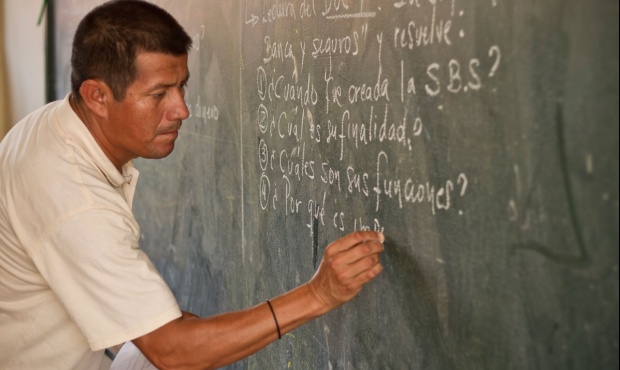 → Lectura del
Banca y seguros" y resuelve:
① ¿Cuándo fue creada la S.B.S?
② ¿Cuál es su finalidad?
③ ¿Cuáles son sus funciones?
④ ¿Por qué es